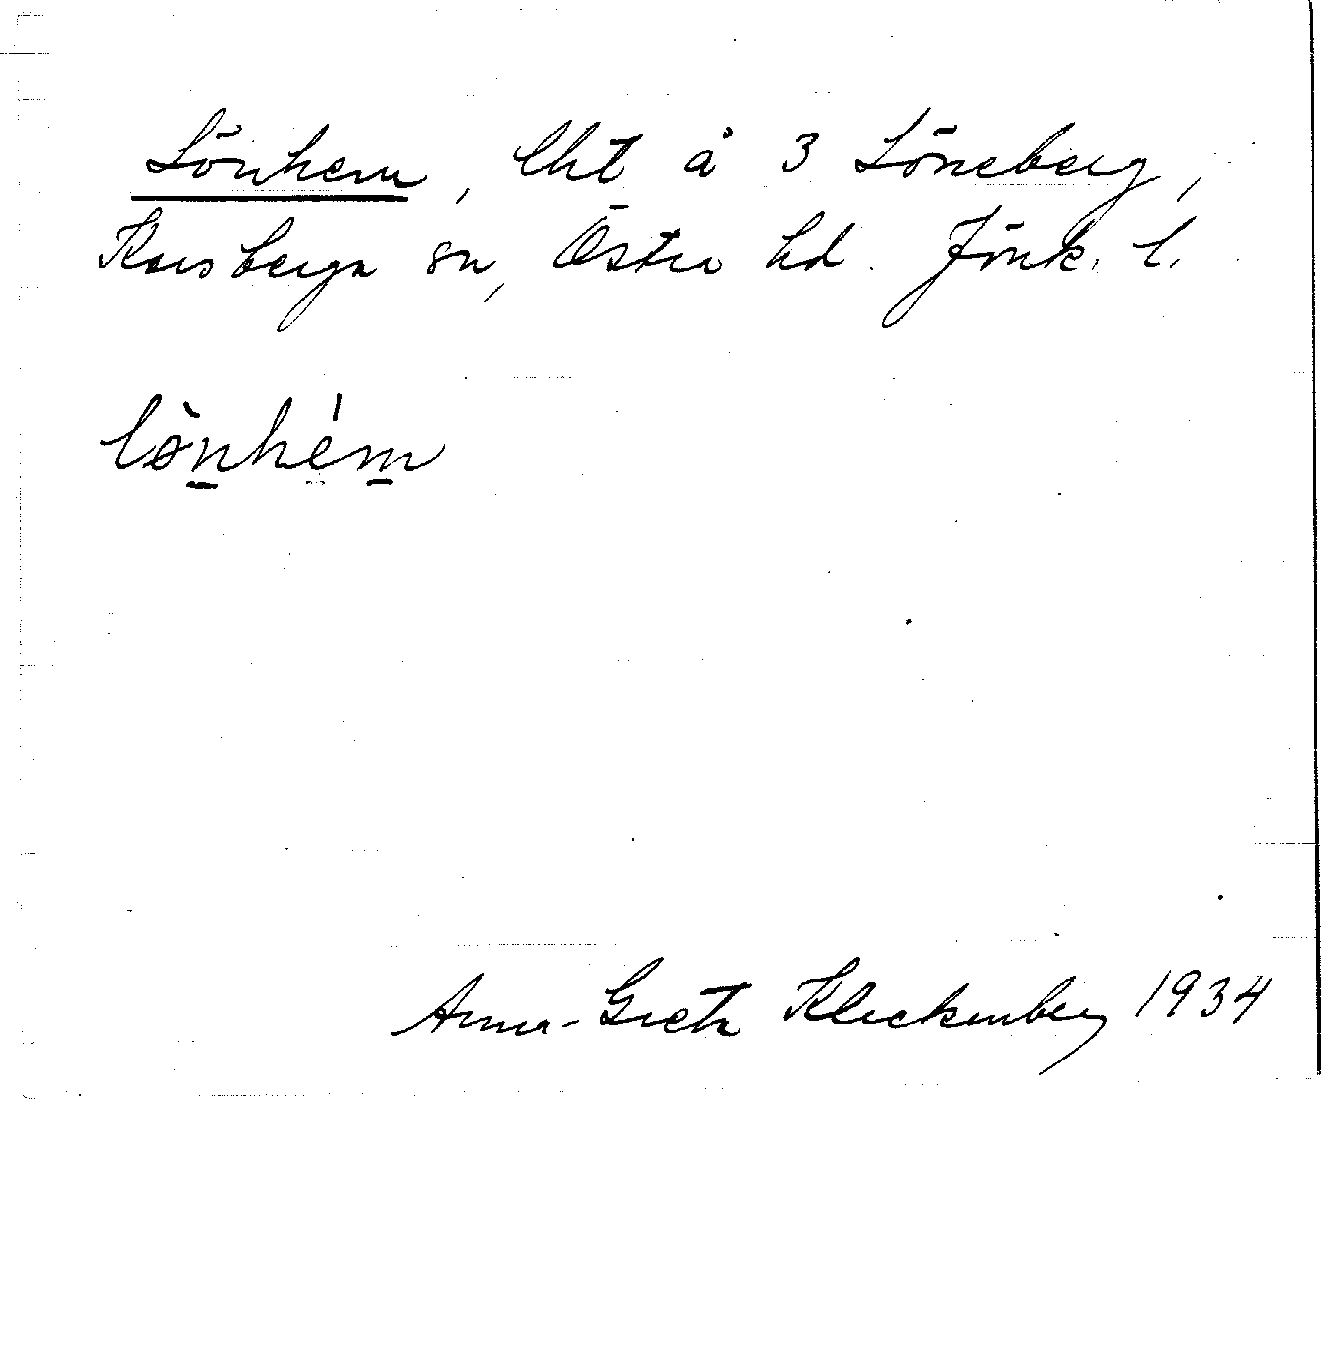 Lönhem, lht å 3 Löneberg,
Korsberga sn, Östra hd. Jönk. l.
lònhém
Anna-Greta Kleckenberg 1934